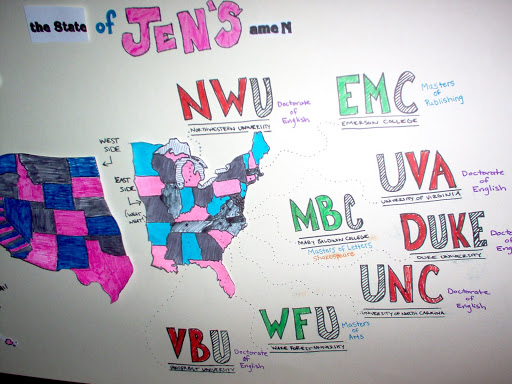 the State of JEN'S ame N
NWU
Doctorate
of
English
NORTHWESTERN UNIVERSITY
EMC
Masters
of
Publishing
EMERSON COLLEGE
WEST
SIDE
EAST
SIDE
UVA
Doctorate
of
English
UNIVERSITY OF VIRGINIA
MBC
MARY BALDWIN COLLEGE
Masters of Letters
Shakespeare
DUKE
Docto
of
Engl
DUKE UNIVERSITY
UNC
Doctorate
of
English
UNIVERSITY OF NORTH CAROLINA
WFU
Masters
of
Arts
WAKE FOREST UNIVERSITY
VBU
Doctorate
of
English
VANDERBILT UNIVERSITY